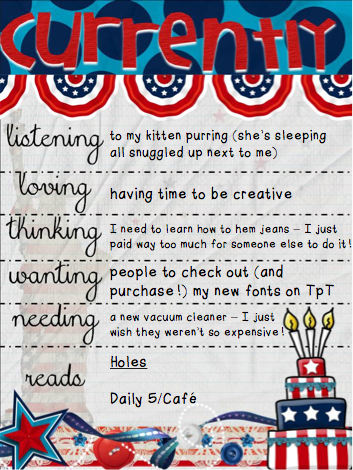 currently
listening
to my kitten purring (she's sleeping
all snuggled up next to me)
loving
having time to be creative
thinking
I need to learn how to hem jeans – I just
paid way too much for someone else to do it!
wanting
people to check out (and
purchase!) my new fonts on TpT
needing
a new vacuum cleaner – I just
wish they weren't so expensive!
reads
Holes
Daily 5/Café